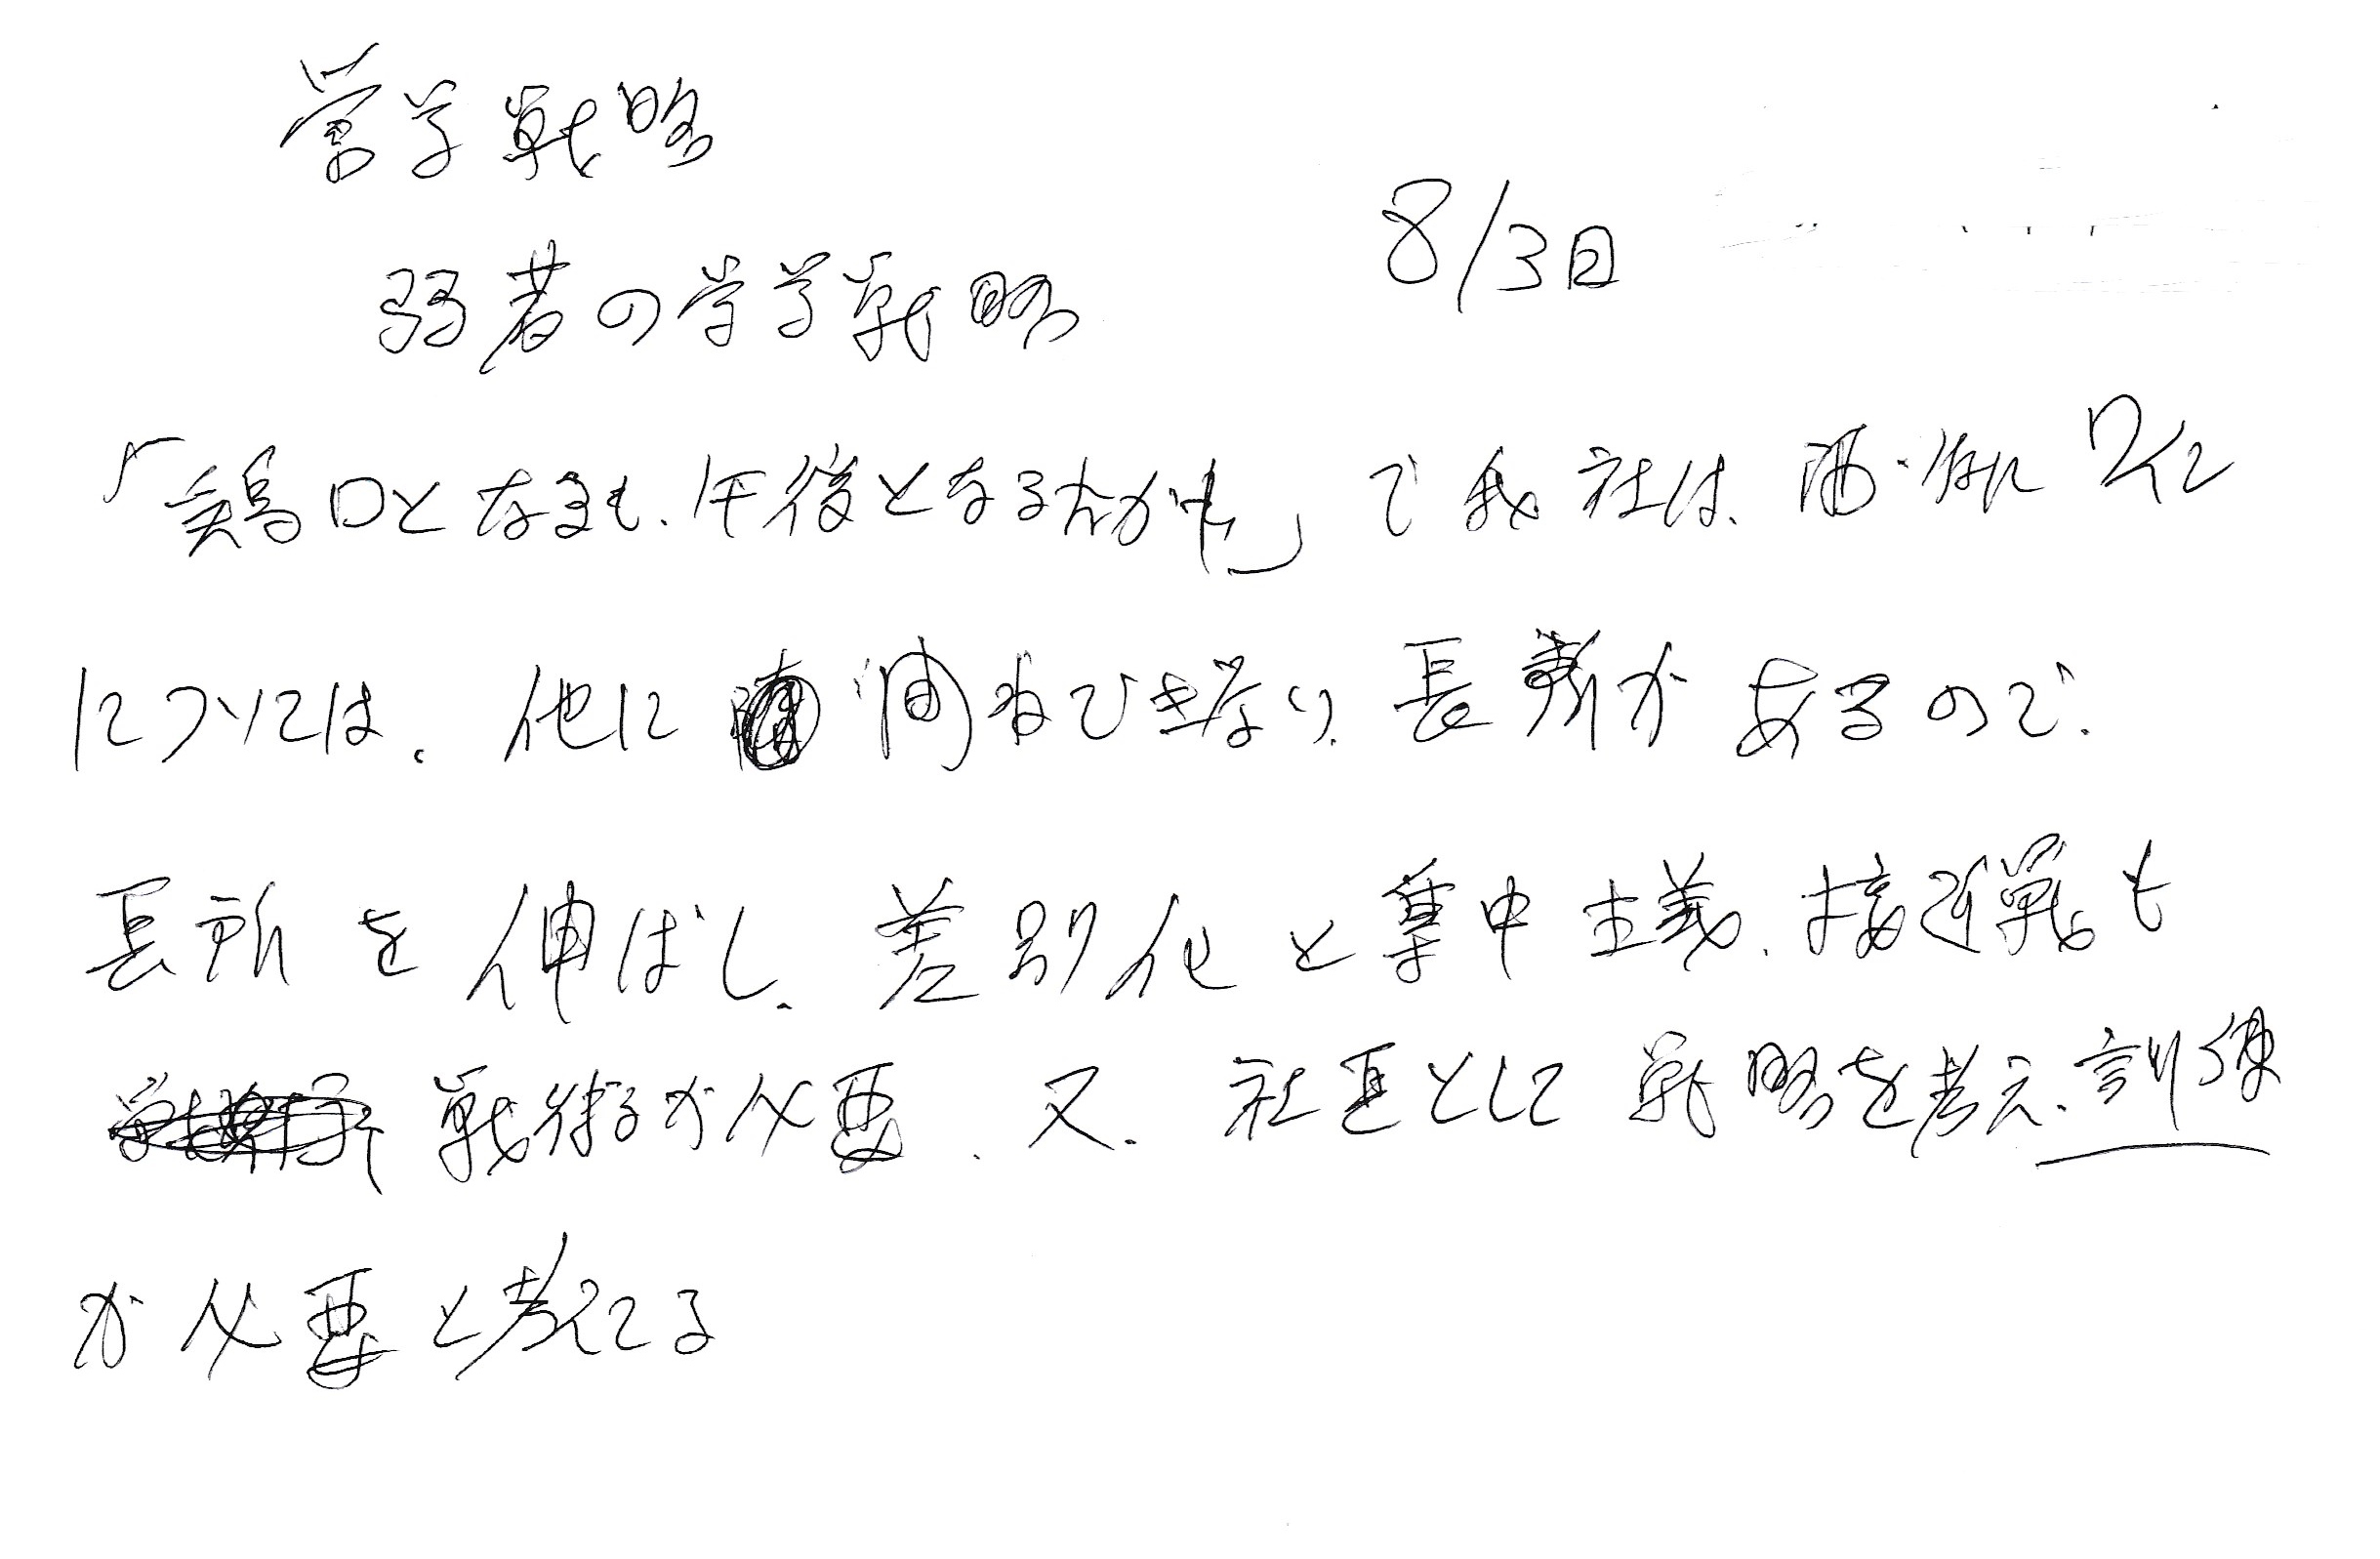 営学戦略
8/3日
弱者の営学戦略
「鶏口となるも、牛後となるなかれ」で我社は、
については、他に まねできない、長所があるので、
長所を伸ばし、差別化と集中主義、接近戦も
戦術が必要、又、社長として戦略を考え、訓練
が必要と考えてる